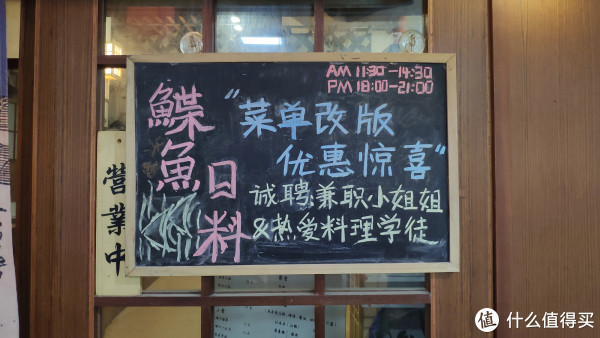 AM 11:30-14:30
PM 18:00-21:00
鰈魚日料
“菜单改版
优惠惊喜”
诚聘兼职小姐姐
&热爱料理学徒
营業中
值 什么值得买